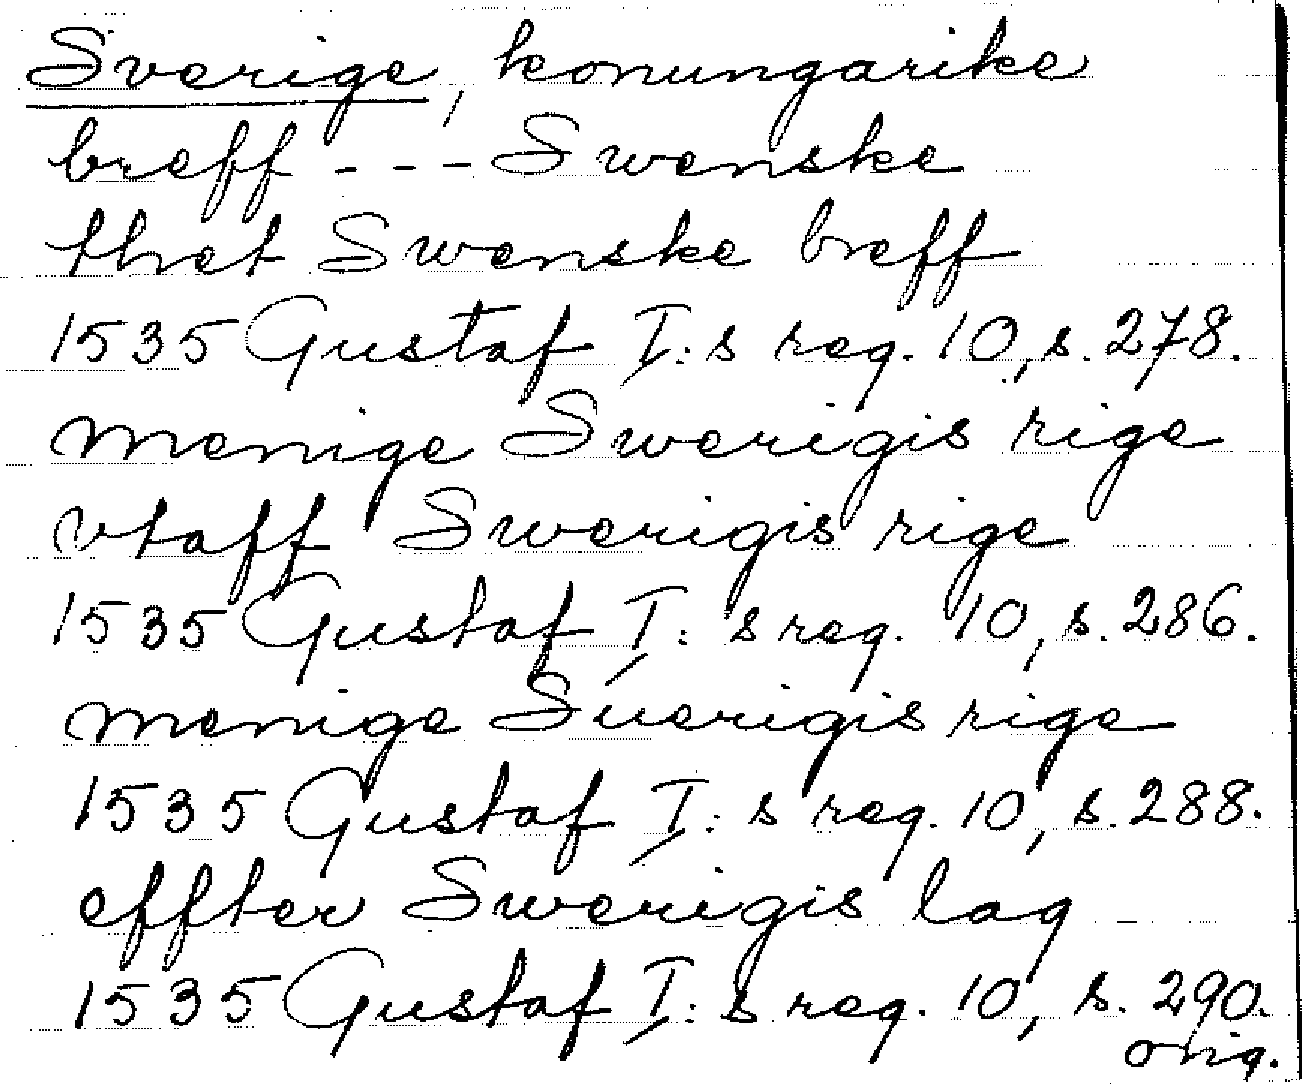 Sverige, konungarike
breff - - - Swenske
thet Swenske breff
1535 Gustaf I:s reg. 10, s. 278.
menige Swerigis rige
vtaff Swerigis rige
1535 Gustaf I:s reg. 10, s. 286.
menige Suerigis rige
1535 Gustaf I:s reg. 10, s. 288.
effter Swerigis lag
1535 Gustaf I:s reg. 10, s. 290.
orig.